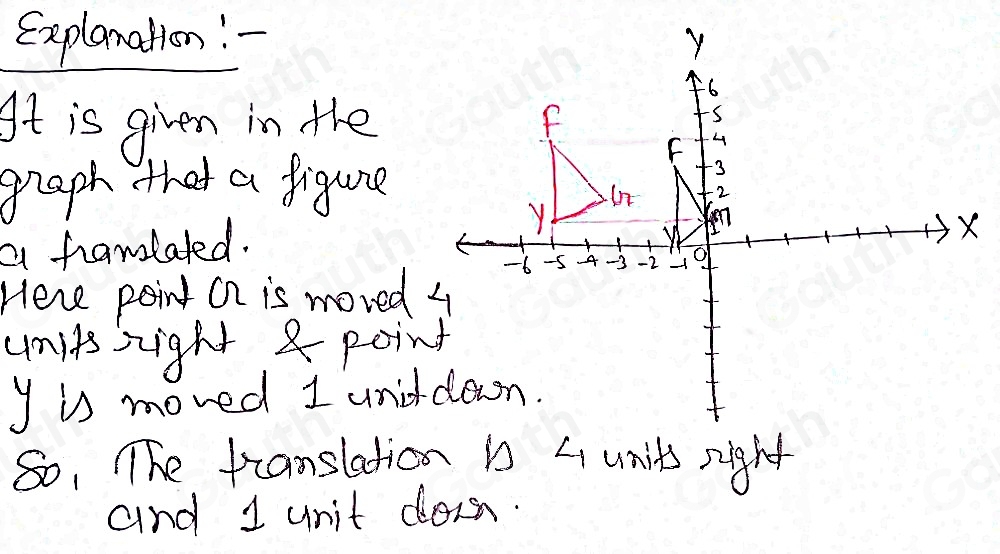 Explanation :-
It is given in the
graph that a figure
a translated.
Here point G is moved 4
units right & point
y is moved 1 unit down.
So, The translation is 4 units right
and 1 unit down.
Y
6
5
4
3
2
1
F
G
Y
F
Y
X
-6 -5 -4 -3 -2 -1 0